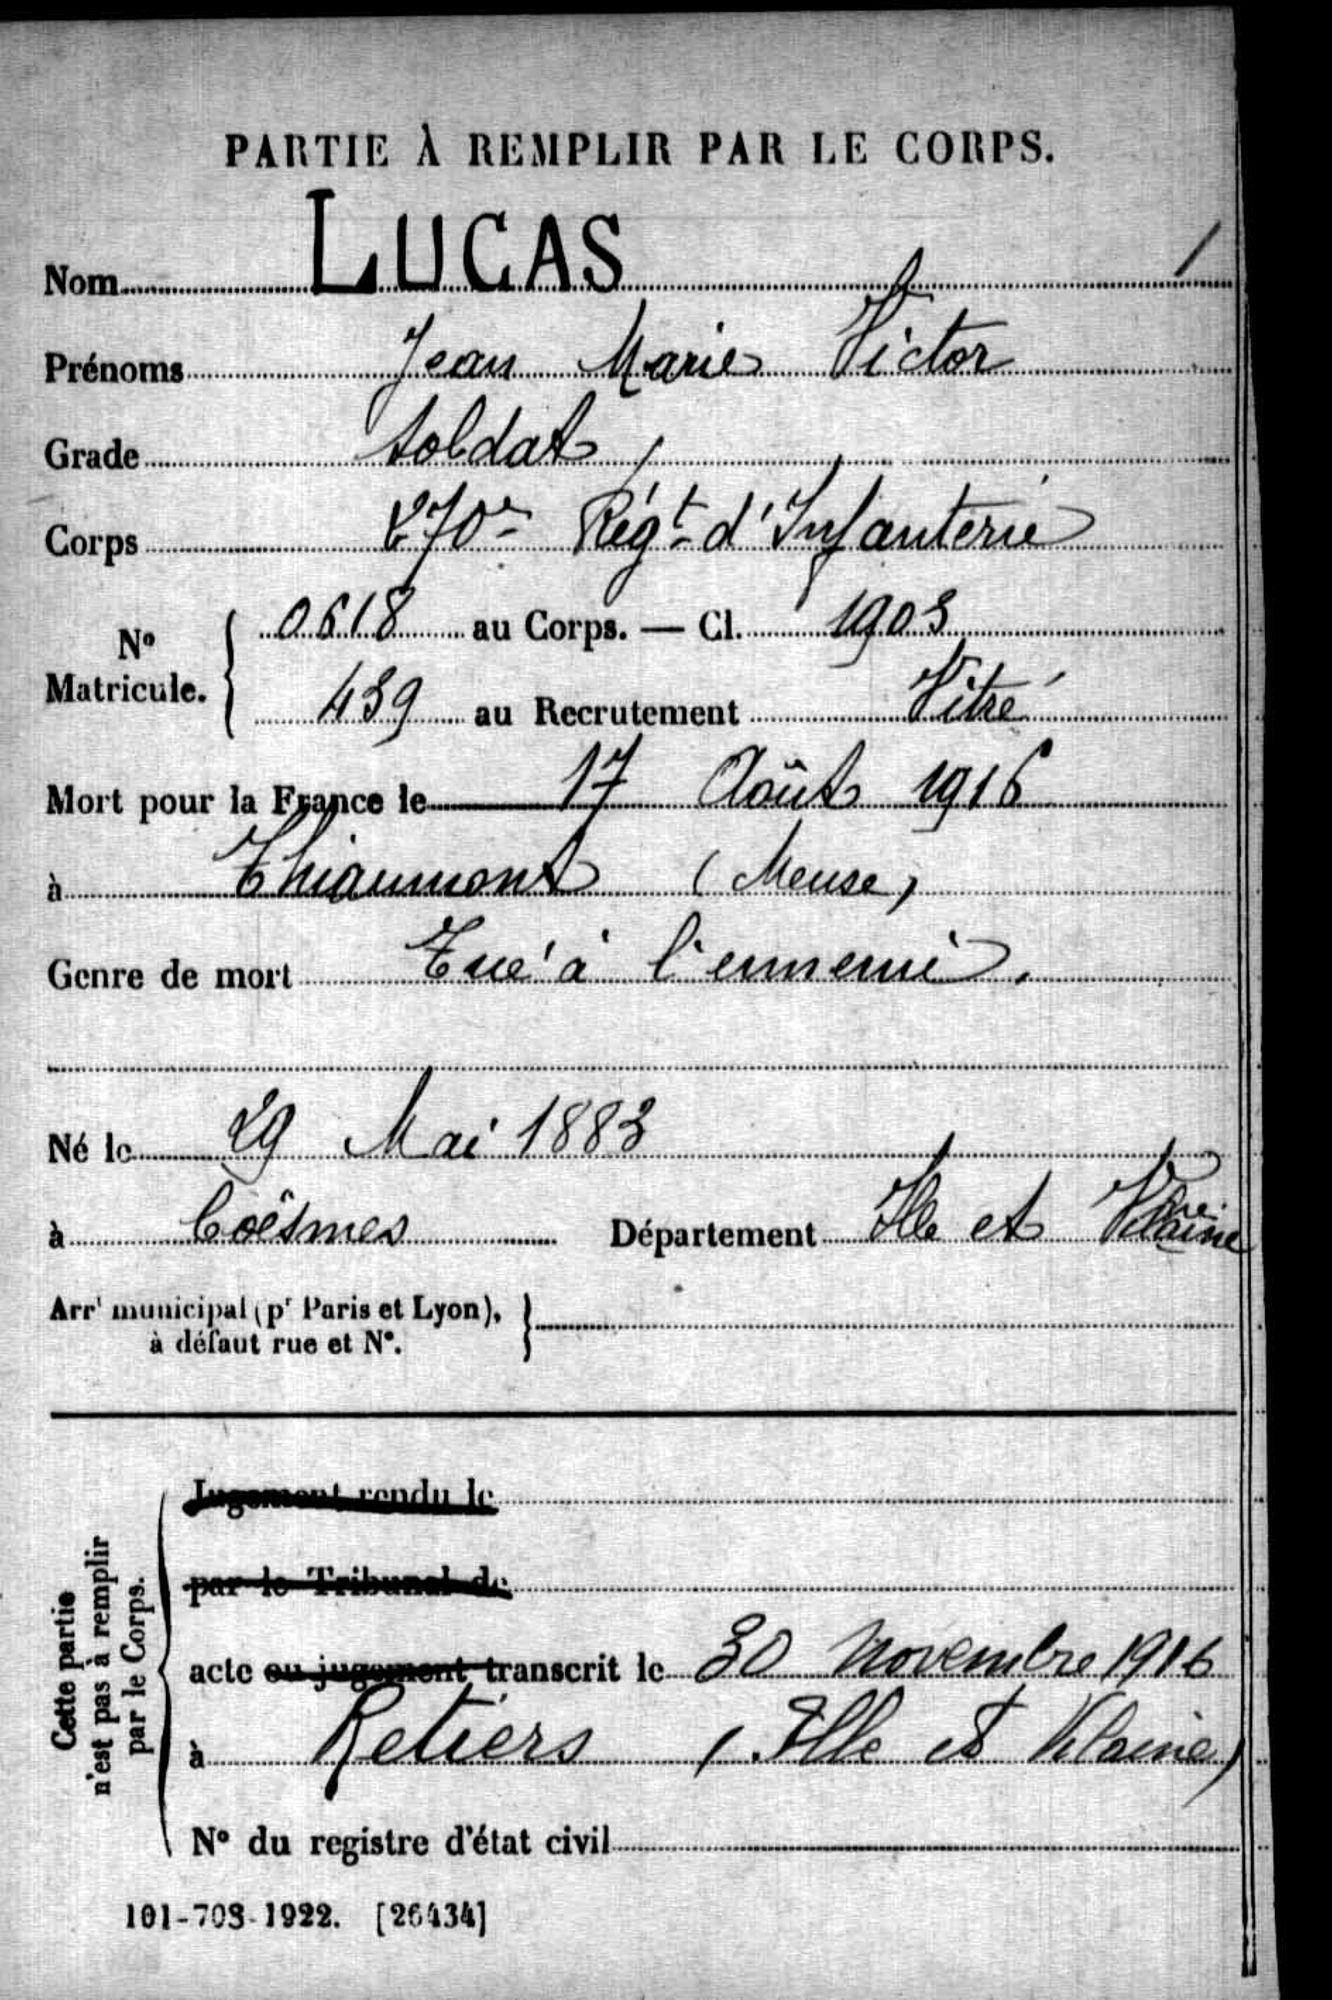 PARTIE À REMPLIR PAR LE CORPS.
Nom LUCAS 1
Prénoms Jean Marie Victor
Grade Soldat
Corps 270e Régt d'Infanterie
N° Matricule. 0618 au Corps. — Cl. 1903
439 au Recrutement Vitré
Mort pour la France le 17 Août 1916
à Thiaumont (Meuse)
Genre de mort Tué à l'ennemi.
Né le 29 Mai 1883
à Coësmes Département Ille et Vilaine
Arrt municipal (pr Paris et Lyon),
à défaut rue et N°.
Cette partie
n'est pas à remplir
par le Corps.
Jugement rendu le
par le Tribunal de
acte ou jugement transcrit le 30 Novembre 1916
à Retiers (Ille et Vilaine)
N° du registre d'état civil
101-708-1922. [26434]